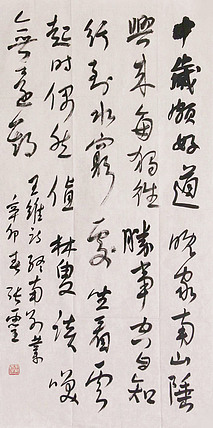 中歲頗好道晚家南山陲
興來每獨往勝事空自知
行到水窮處坐看雲
起时偶然值林叟談咲
無還期
王維詩終南別業
辛卯春張